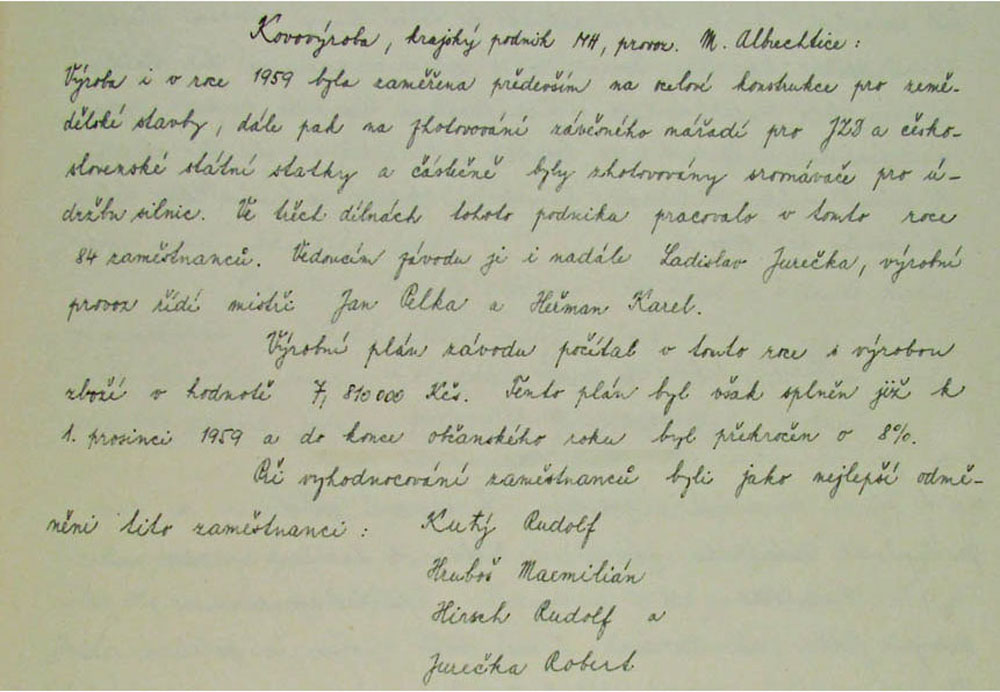 Kovovýroba, krajský podnik MH, provoz. M. Albrechtice:
Výroba i v roce 1959 byla zaměřena především na ocelové konstrukce pro země-
dělské stavby, dále pak na zhotovování závěsného nářadí pro JZD a česko-
slovenské státní statky a částečně byly zhotovovány srovnávače pro ú-
držbu silnic. Ve třech dílnách tohoto podniku pracovalo v tomto roce
84 zaměstnanců. Vedoucím závodu je i nadále Ladislav Jurečka, výrobní
provoz řídí mistři Jan Pelka a Heřman Karel.
Výrobní plán závodu počítal v tomto roce s výrobou
zboží v hodnotě 7,810 000 Kčs. Tento plán byl však splněn již k
1. prosinci 1959 a do konce občanského roku byl překročen o 8%.
Při vyhodnocování zaměstnanců byli jako nejlepší odmě-
něni tito zaměstnanci: Kutý Rudolf
Hruboš Maxmilián
Hirsch Rudolf a
Jurečka Robert